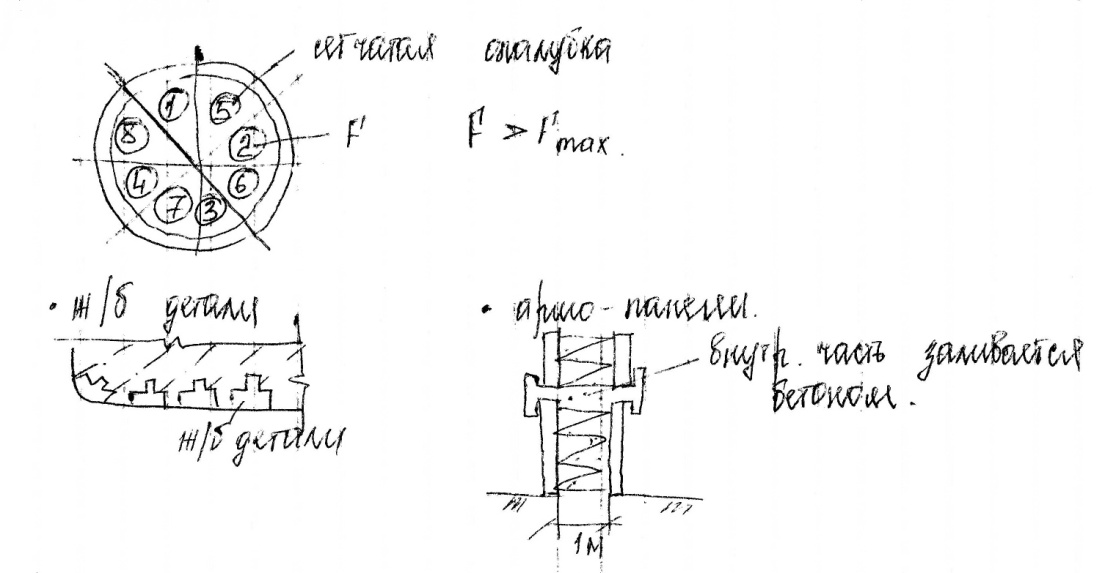 сетчатая опалубка
1 5
8 2 F F > Fmax.
4 6
7 3
• ж/б детали
• армо-панели.
внутр. часть заливается
бетоном.
ж/б детали
1м